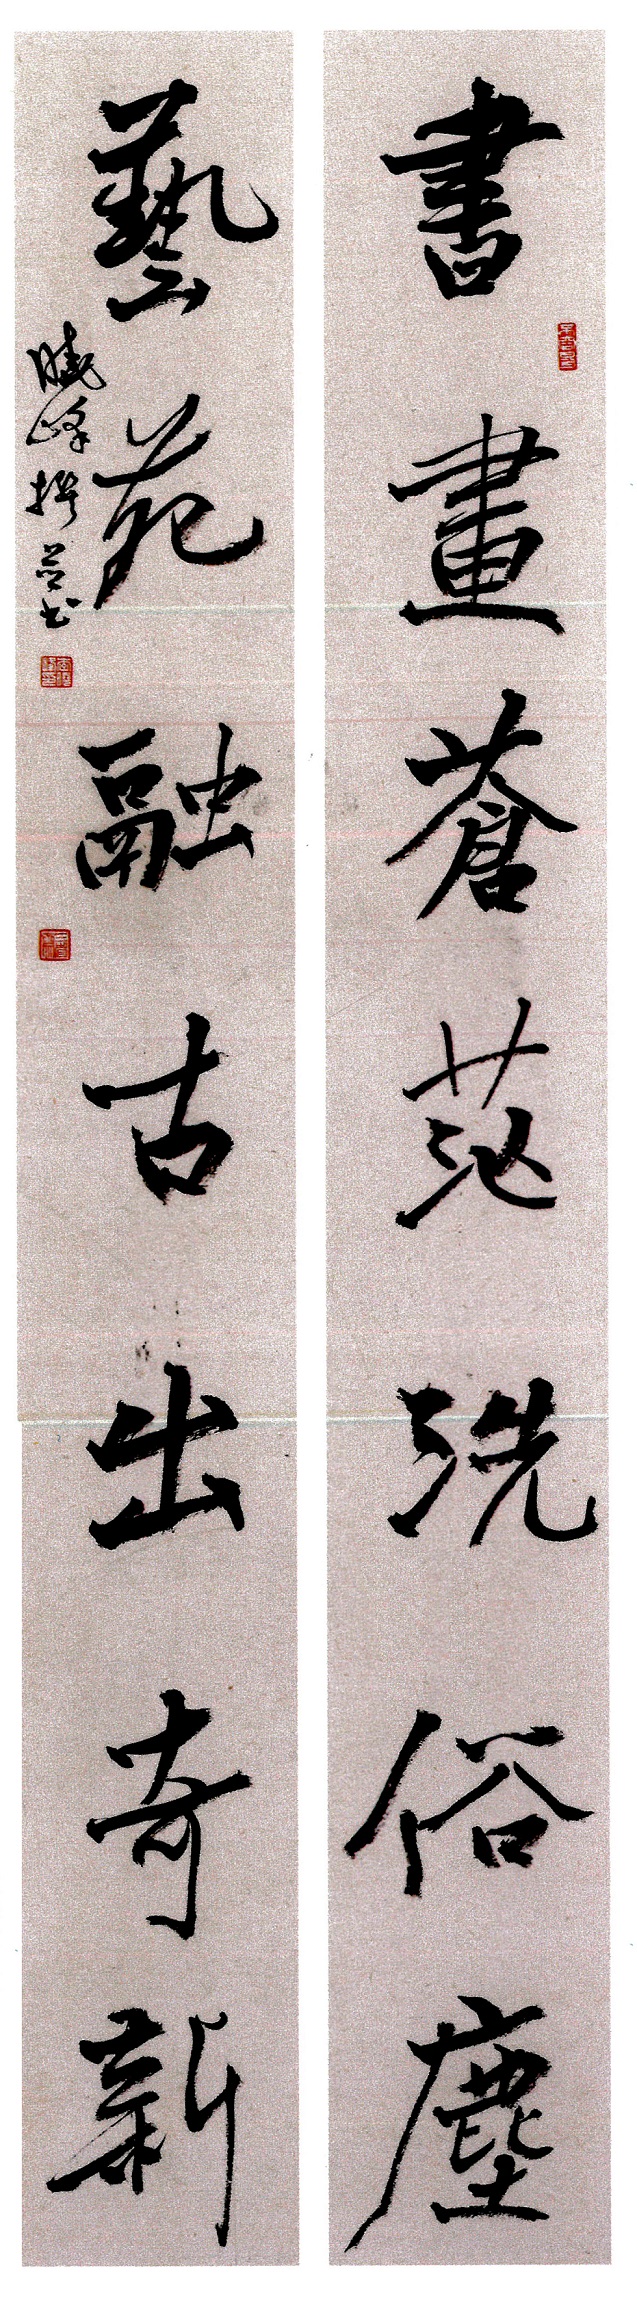 書畫蒼茫洗俗塵
藝苑融古出奇新
曉峰撰并書